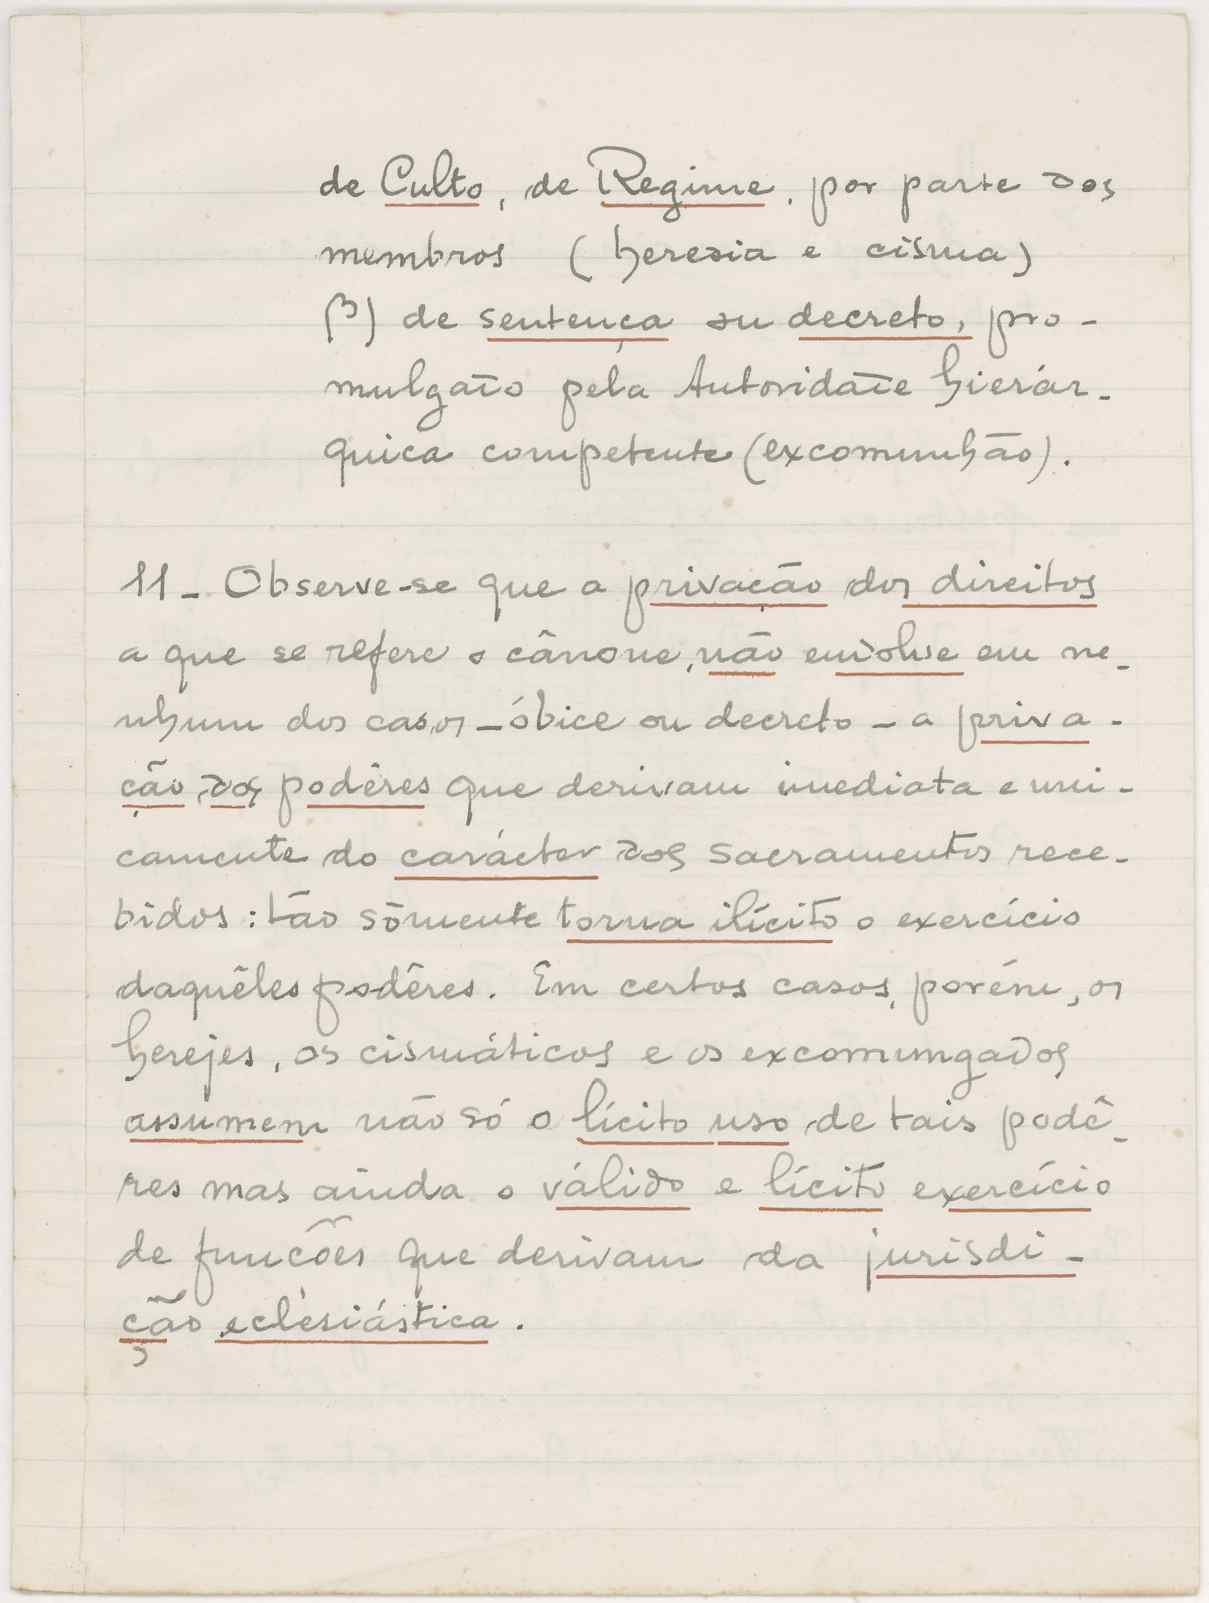 de Culto, de Regime, por parte dos
membros (heresia e cisma)
β) de sentença ou decreto, pro-
mulgato pela Autoridade hierár-
quica competente (excomunhão).
11- Observe-se que a privação dos direitos
a que se refere o cânone, não envolve em ne-
nhum dos casos - óbice ou decreto - a priva-
ção dos podêres que derivam imediata e uni-
camente do carácter dos sacramentos rece-
bidos: tão sòmente torna ilícito o exercício
daquêles podêres. Em certos casos, porém, os
herejes, os cismáticos e os excomungados
assumem não só o lícito uso de tais podê-
res mas ainda o válido e lícito exercício
de funções que derivam da jurisdi-
ção eclesiástica.